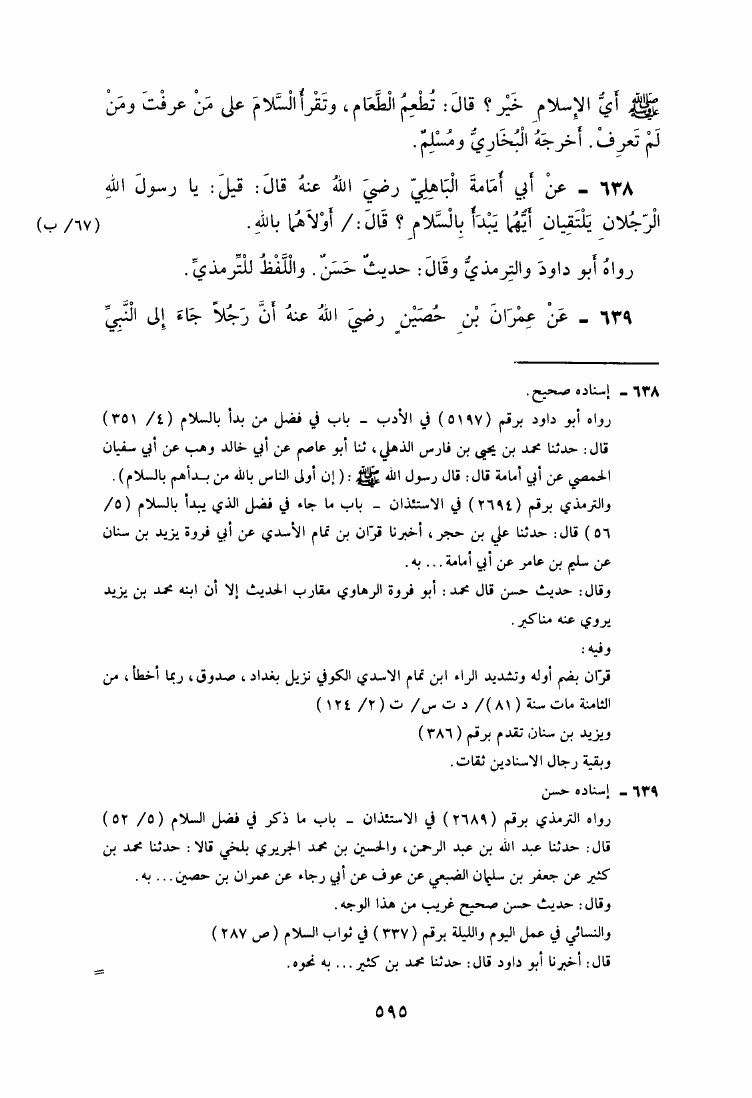 ﷺ أَيُّ الإِسلامِ خَيْر؟ قالَ: تُطْعِمُ الْطَّعَام، وتَقْرأُ السَّلامَ على مَنْ عرفْتَ ومَنْ
لَمْ تَعرِفْ. أخرجَهُ الْبُخَارِيُّ ومُسْلِمٌ.
٦٣٨ - عنْ أَبي أُمَامَةَ الْبَاهِليّ رضيَ اللهُ عنهُ قالَ: قيلَ: يا رسولَ اللهِ
الْرّجُلانِ يَلْتَقِيانِ أَيَّهُما يَبْدَأُ بِالْسَّلامِ؟ قَالَ:/ أَوْلاَهُما باللهِ. (٦٧/ ب)
رواهُ أبو داودَ والتِرمذيُّ وقَالَ: حديثٌ حَسَنٌ. واللَّفْظُ للتِّرمذيِّ.
٦٣٩ - عَنْ عِمْرَانَ بْنِ حُصَيْنٍ رضيَ اللهُ عنهُ أَنَّ رَجُلاً جَاءَ إِلى الْنَّبِيِّ
٦٣٨ - إسناده صحيح.
رواه أبو داود برقم (٥١٩٧) في الأدب - باب في فضل من بدأ بالسلام (٤/ ٣٥١)
قال: حدثنا محمد بن يحيى بن فارس الذهلي، ثنا أبو عاصم عن أبي خالد وهب عن أبي سفيان
الحمصي عن أبي أمامة قال: قال رسول الله ﷺ: (إن أولى الناس بالله من بـدأهم بالسلام).
والترمذي برقم (٢٦٩٤) في الاستئذان - باب ما جاء في فضل الذي يبدأ بالسلام (٥/
٥٦) قال: حدثنا علي بن حجر، أخبرنا قرّان بن تمام الأسدي عن أبي فروة يزيد بن سنان
عن سليم بن عامر عن أبي أمامة... به.
وقال: حديث حسن قال محمد: أبو فروة الرهاوي مقارب الحديث إلا أن ابنه محمد بن يزيد
يروي عنه مناكير.
وفيه:
قرّان بضم أوله وتشديد الراء ابن تمام الاسدي الكوفي نزيل بغداد، صدوق، ربما أخطأ، من
الثامنة مات سنة (٨١)/ د ت س/ ت (٢/ ١٢٤)
ويزيد بن سنان تقدم برقم (٣٨٦)
وبقية رجال الاسنادين ثقات.
٦٣٩ - إسناده حسن
رواه الترمذي برقم (٢٦٨٩) في الاستئذان - باب ما ذكر في فضل السلام (٥/ ٥٢)
قال: حدثنا عبد الله بن عبد الرحمن، والحسين بن محمد الجريري بلخي قالا: حدثنا محمد بن
كثير عن جعفر بن سليمان الضبعي عن عوف عن أبي رجاء عن عمران بن حصين... به.
وقال: حديث حسن صحيح غريب من هذا الوجه.
والنسائي في عمل اليوم والليلة برقم (٣٣٧) في ثواب السلام (ص ٢٨٧)
قال: أخبرنا أبو داود قال: حدثنا محمد بن كثير... به نحوه. =
٥٩٥